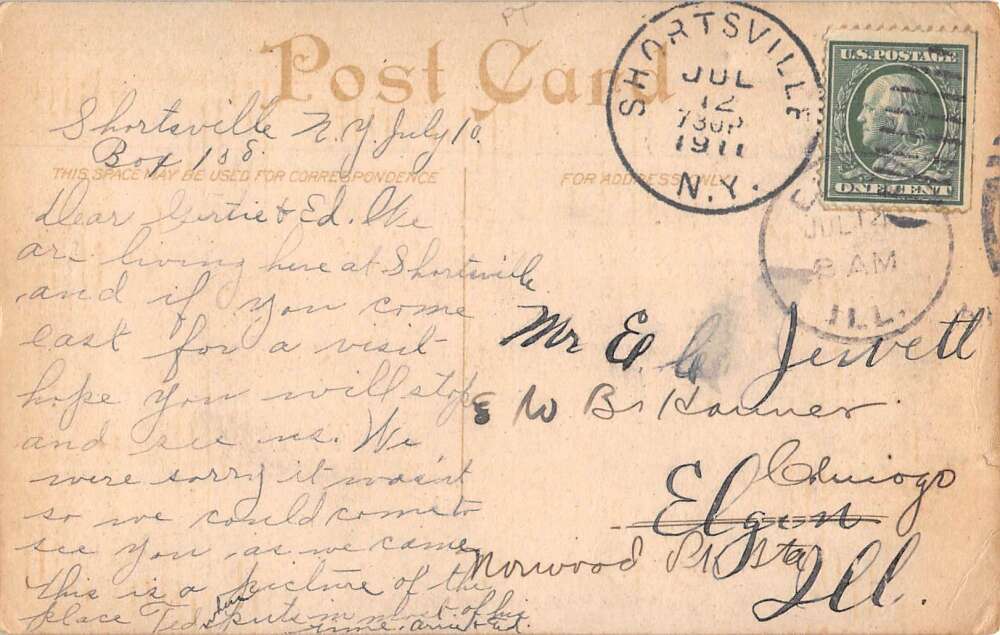 Post Card
SHORTSVILLE
JUL
12
730P
1911
N.Y.
U.S. POSTAGE
ONE CENT
JUL 14
8 AM
ILL.
THIS SPACE MAY BE USED FOR CORRESPONDENCE
FOR ADDRESS ONLY
Shortsville N.Y. July 10
Box 158
Dear Gertie & Ed. We
are living here at Shortsville
and if you come
east for a visit
hope you will stop
and see us. We
were sorry it wasn't
so we could come to
see you, as we came.
This is a picture of the
place Ted puts in most of his
time. and Ed.
Mr E. C. Jewett
Elgin
Chicago
Norwood Pk Sta
Ill.